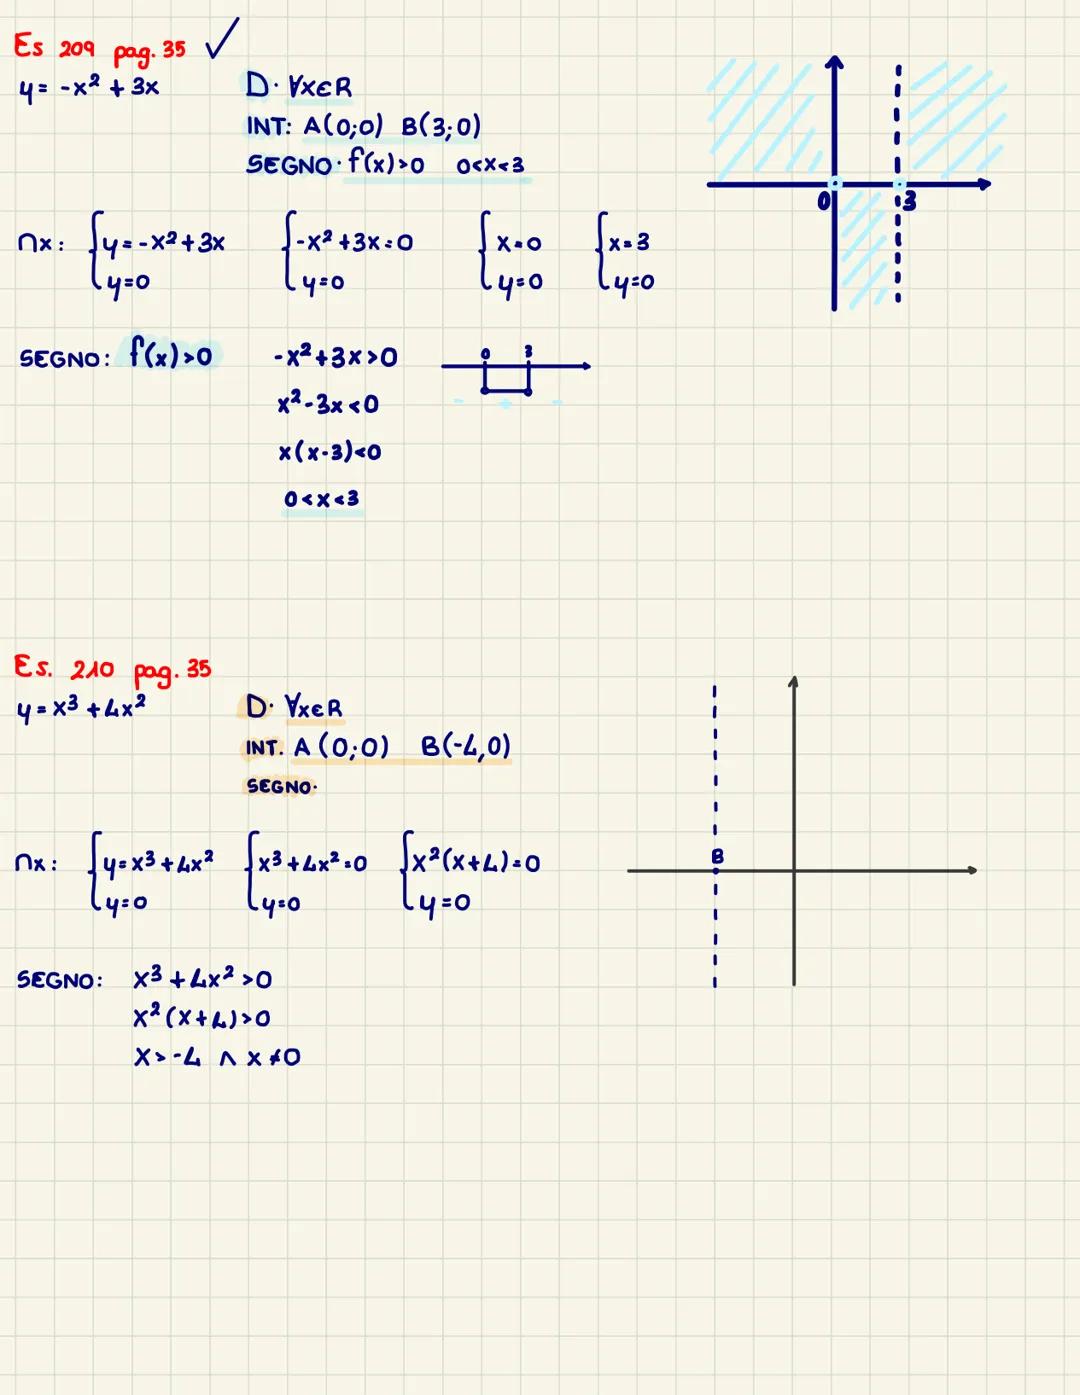 Es 209 pag. 35 ✓
y = -x² + 3x
D: ∀x∈R
INT: A(0;0) B(3;0)
SEGNO: f(x)>0 0<x<3
0 3
∩x: {y=-x²+3x {-x²+3x=0 {x=0 {x=3
y=0 y=0 y=0 y=0
SEGNO: f(x)>0 -x²+3x>0 0 3
x²-3x<0 - + -
x(x-3)<0
0<x<3
Es. 210 pag. 35
y=x³+4x² D: ∀x∈R
INT. A(0;0) B(-4,0)
SEGNO:
B
∩x: {y=x³+4x² {x³+4x²=0 {x²(x+4)=0
y=0 y=0 y=0
SEGNO: x³+4x²>0
x²(x+4)>0
x>-4 ∧ x≠0